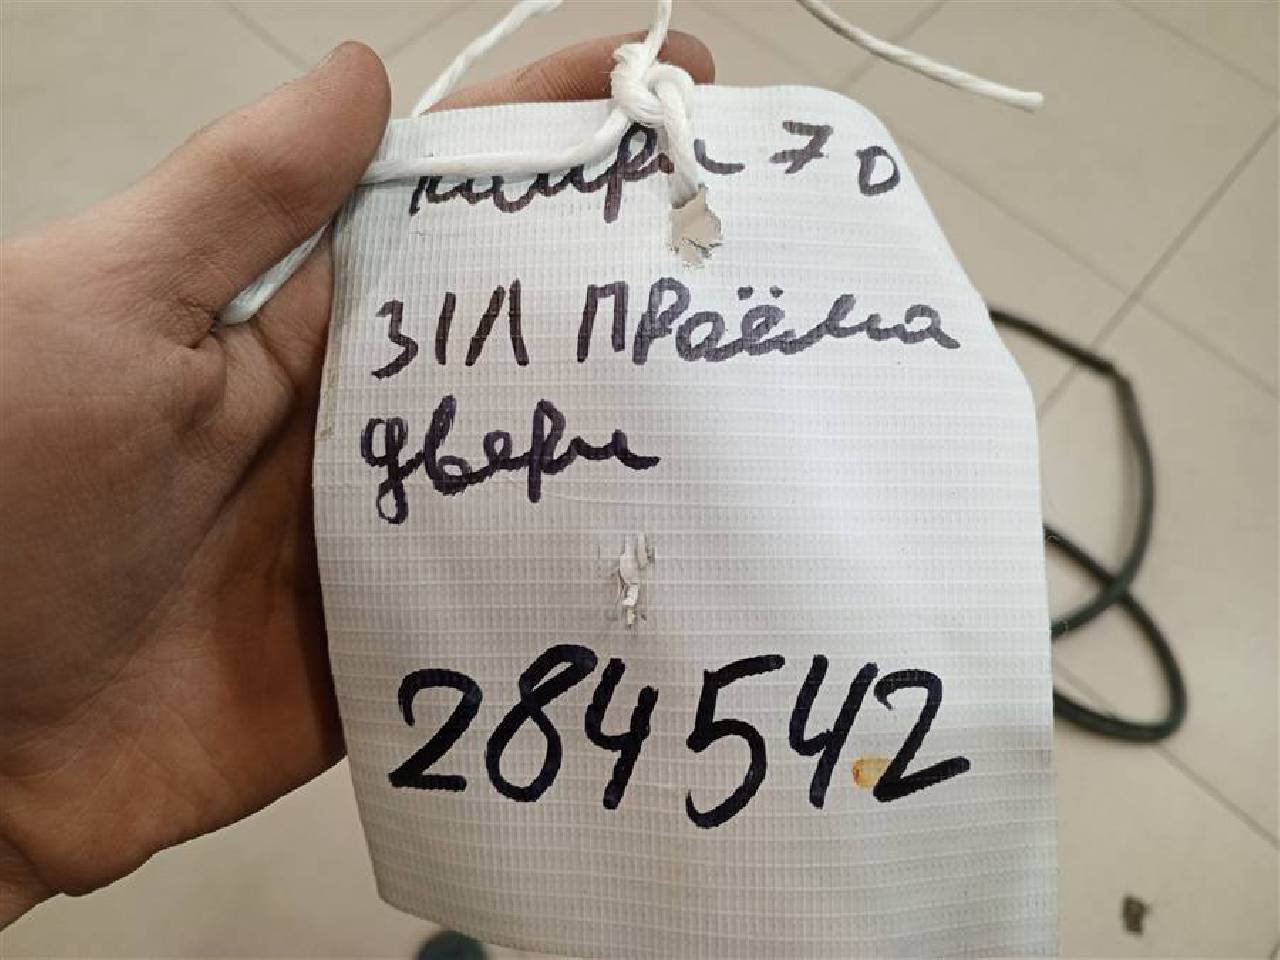 камри 70
З/Л проёма
двери
284542